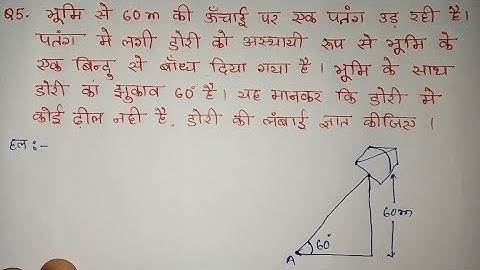 Q5. भूमि से 60 m की ऊँचाई पर एक पतंग उड़ रही है।
पतंग मे लगी डोरी को अस्थायी रूप से भूमि के
एक बिन्दु से बाँध दिया गया है। भूमि के साथ
डोरी का झुकाव 60° है। यह मानकर कि डोरी मे
कोई ढ़ील नही है, डोरी की लंबाई ज्ञात कीजिए ।
हल :-
60m
A 60°